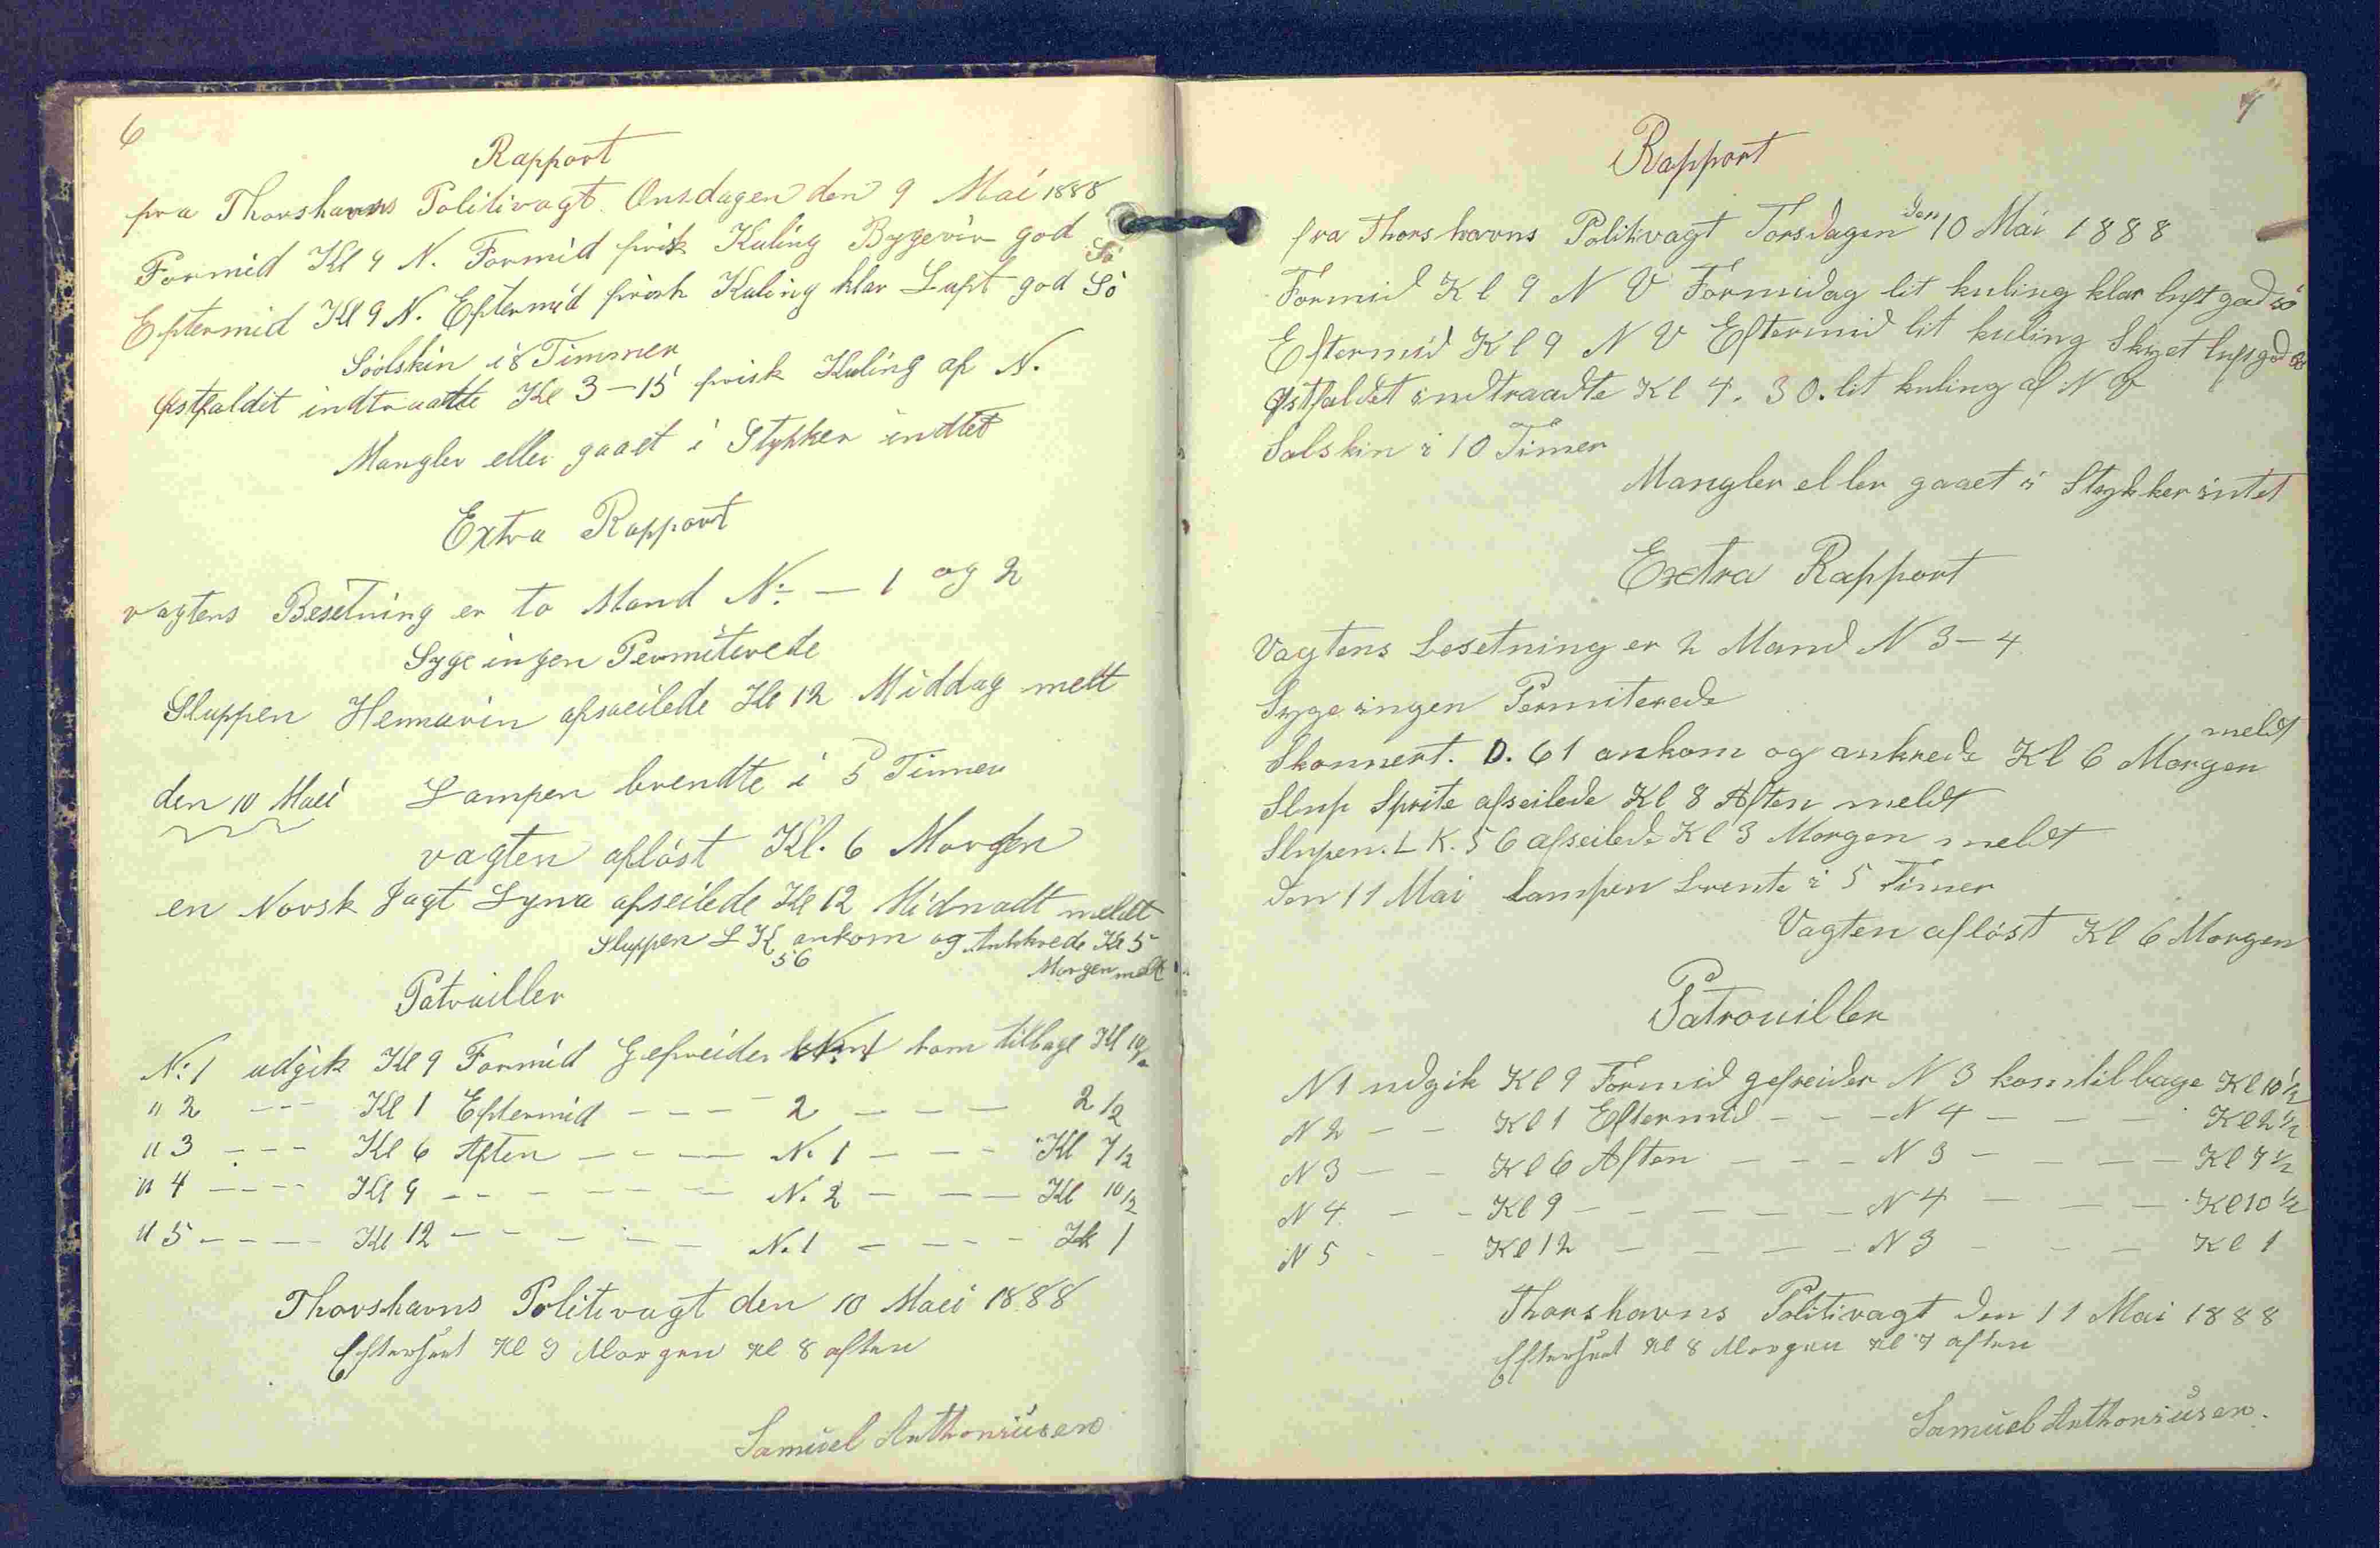 6
Rapport
fra Thorshavns Politivagt. Onsdagen den 9 Mai 1888
Formid Kl 9 N. Formid frisk Kuling Bygevir god Sö
Eftermid Kl 9 N. Eftermid frisk Kuling klar Luft god Sö
Söolskin i 8 Timmer
østfaldit indtraatte Kl 3-15 frisk Kuling af N.
Mangler eller gaaet i Stykker indtet
Extra Rapport
vagtens Besetning er to Mand No. - 1 og 2
Syge ingen Permiterede
Sluppen afseilede Kl 12 Middag melt
den 10 Maei Lampen brendte i 5 Timmer
vagten aflöst Kl. 6 Morgen
en Norsk Jagt Lyna afseilede Kl 12 Midnadt meldt
Sluppen L K 56 ankom og Ankkrede Kl 5
Morgen meldt
Patruiller
No. 1 udgik Kl 9 Formid Gefreider No. 1 kom tilbage Kl 10/2
" 2 --- Kl 1 Eftermid ---- 2 --- 2 1/2
" 3 --- Kl 6 Aften ---- No. 1 --- Kl 7 1/2
" 4 ---- Kl 9 ------ No. 2 --- Kl 10 1/2
" 5 ---- Kl 12 ----- No. 1 ---- Kl 1
Thorshavns Politivagt den 10 Maei 1888
Efterseet Kl 9 Morgen Kl 8 aften
Samuel Anthoniusen
7
Rapport
fra Thorshavns Politivagt Torsdagen den 10 Mai 1888
Formid Kl 9 N V Formidag lit kuling klar luft god sö
Eftermid Kl 9 N V Eftermid lit kuling Skyet luft god sö
Østfaldet indtraadte Kl 4. 30. lit kuling af N V
Solskin i 10 Timer
Mangler eller gaaet i Stykker intet
Extra Rapport
Vagtens besetning er 2 Mand N 3-4
Syge ingen Permiterede
Skonnert. D. 61 ankom og ankrede Kl 6 Morgen meldt
Slup Sprite afseilede Kl 8 Aften meldt
Slupen. L K. 56 afseilede Kl 3 Morgen meldt
den 11 Mai lampen brente i 5 Timer
Vagten aflöst Kl 6 Morgen
Patrouiller
N 1 udgik Kl 9 Formid gefreider N 3 kom tilbage Kl 10 1/2
N 2 -- Kl 1 Eftermid --- N 4 --- Kl 2 1/2
N 3 -- Kl 6 Aften --- N 3 ---- Kl 7 1/2
N 4 -- Kl 9 ----- N 4 --- Kl 10 1/2
N 5 -- Kl 12 ---- N 3 --- Kl 1
Thorshavns Politivagt den 11 Mai 1888
Efterseet Kl 8 Morgen Kl 7 aften
Samuel Anthoniusen.